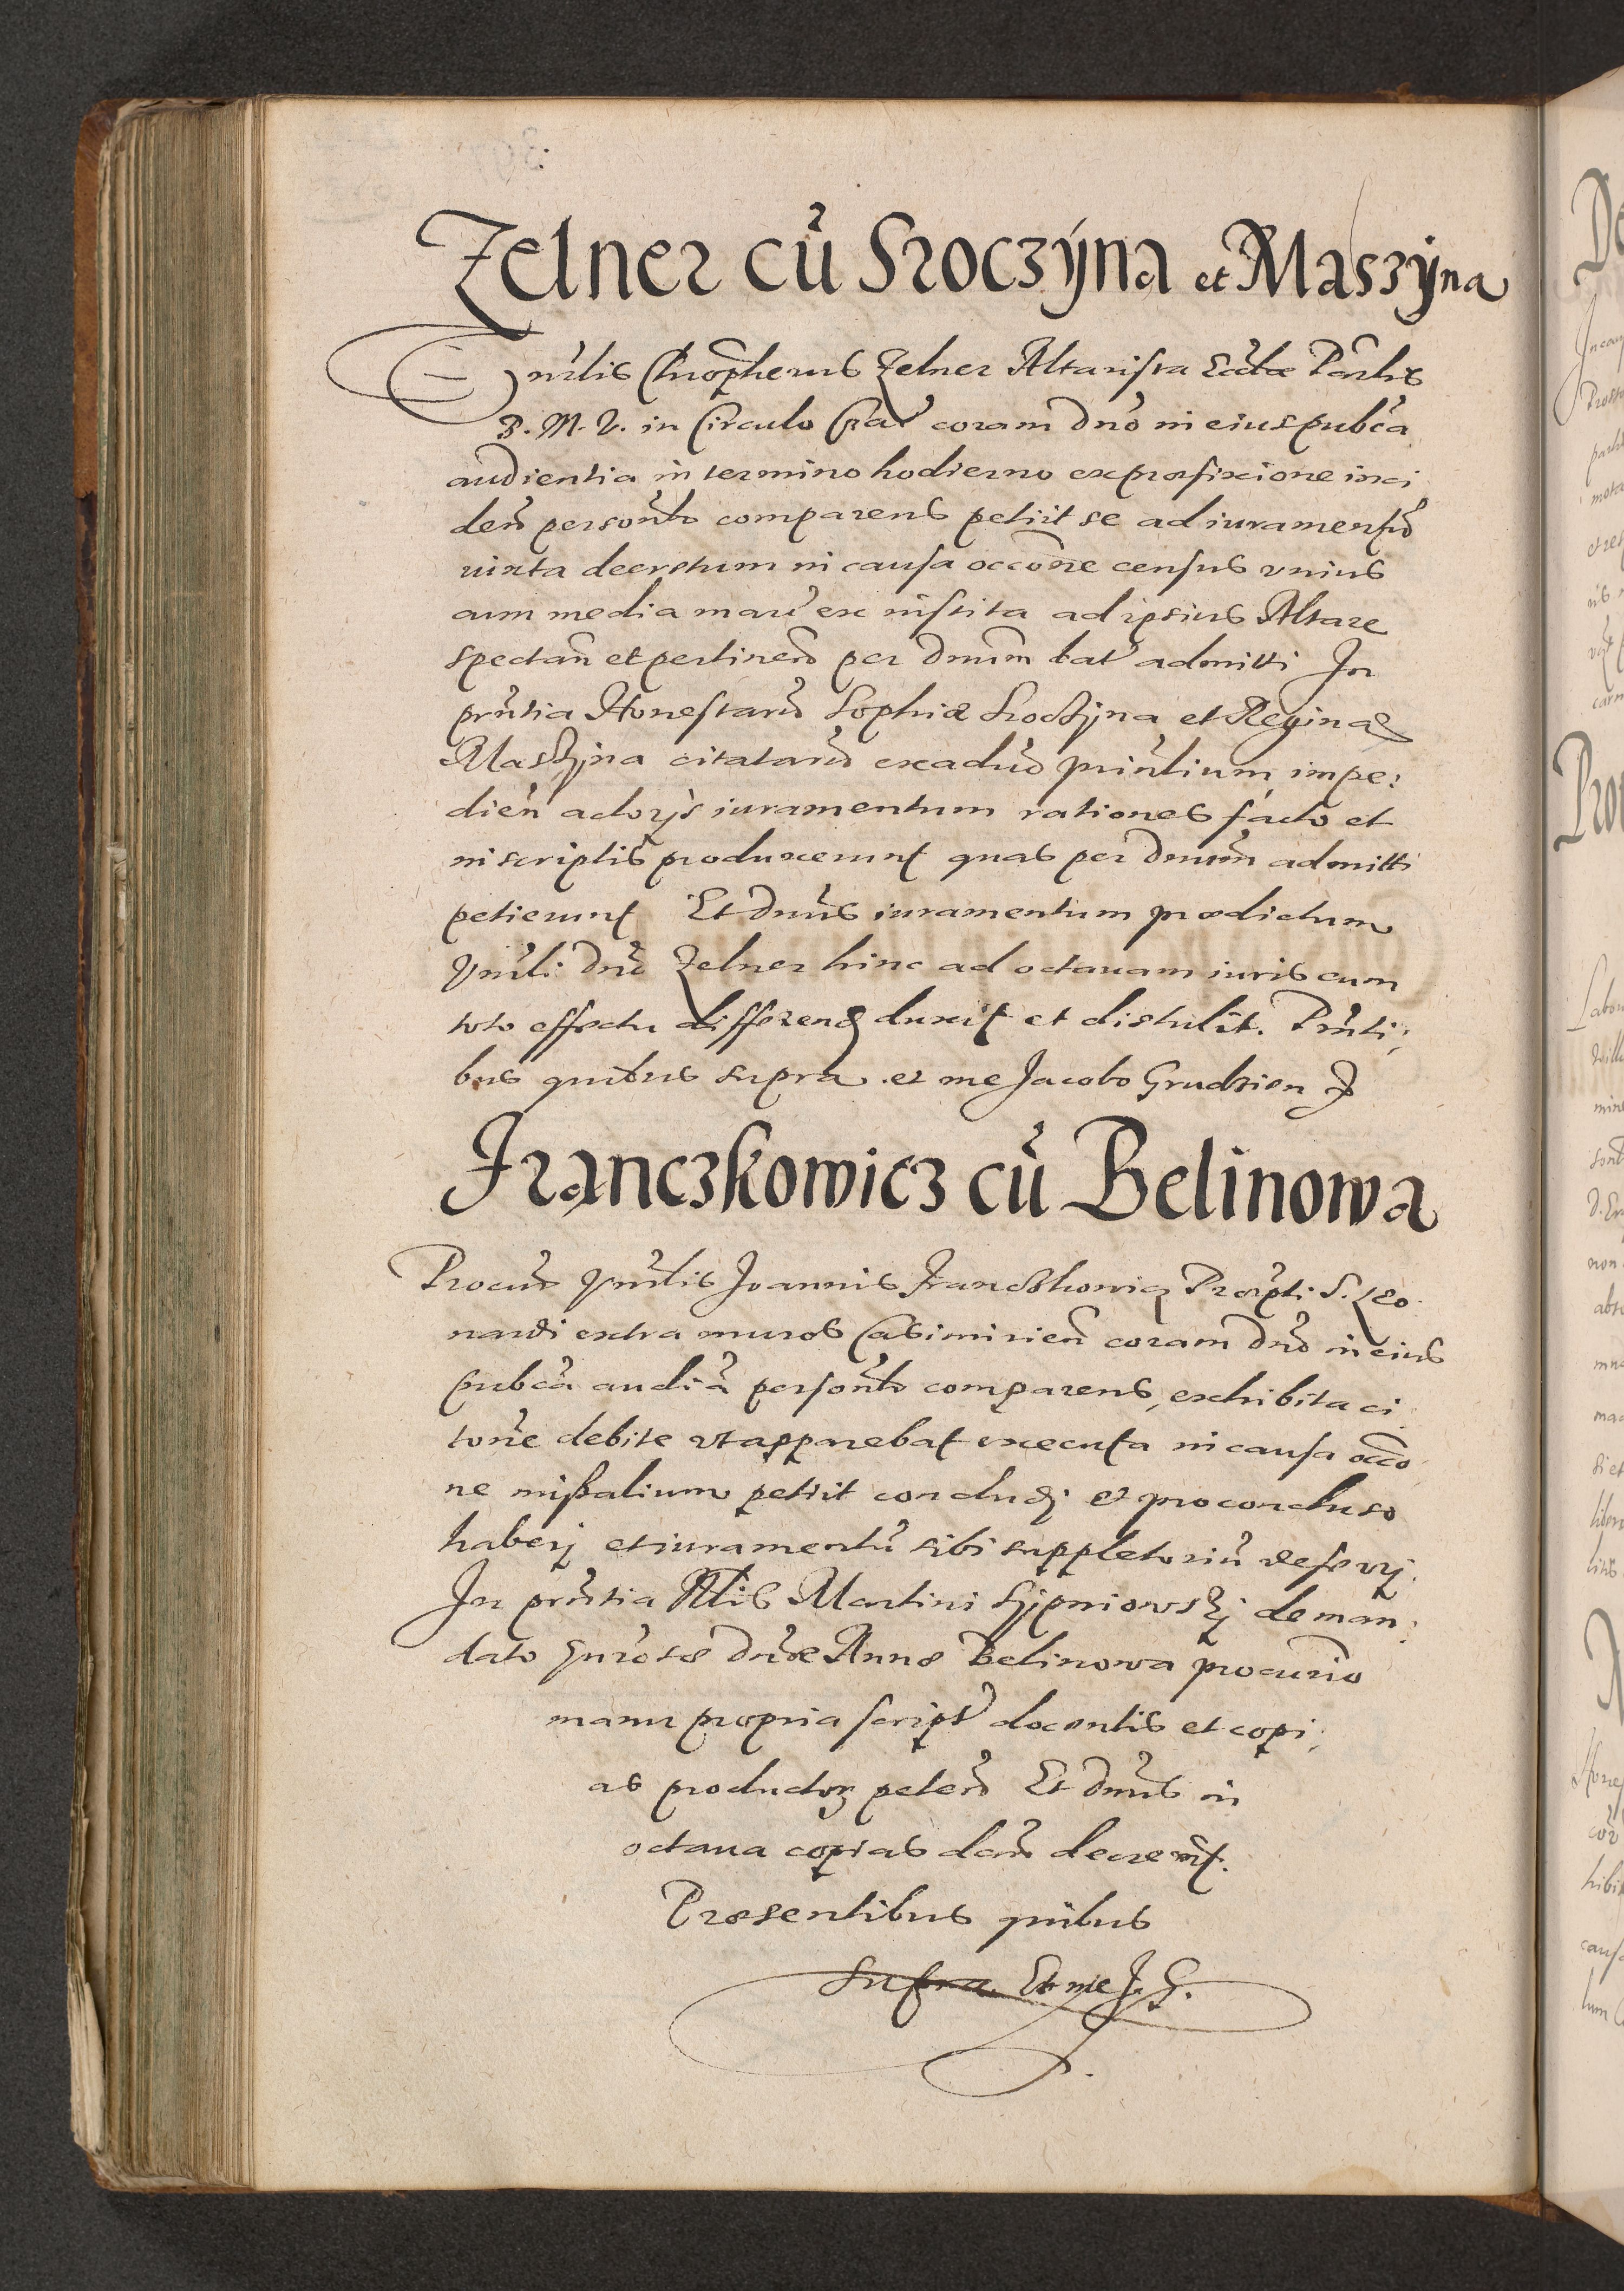 Zelner cu Sroczÿna et Maszÿna
Vnrlis Christopherus Zelner Altarista Eccliæ Parlis
B. M. V. in Circulo Crac coram dno in eius publca
audientia in termino hodierno ex præfixione inci
den personlr comparens petiit se ad iuramentu
iuxta decretum in causa occone census vnius
cum media marc ex inscta ad ipsius Altare
spectan et pertinen per dnum bat admitti In
prntia Honestaru Sophiæ Sroczÿna et Reginæ
Maszÿna citataru ex aduo printium impe:
dien actorÿs iuramentum rationes facto et
in scriptis produxerunt quas per dnum admitti
petierunt Et dnus iuramentum prædictum
Vnrli dno Zelner hinc ad octauam iuris cum
toto effectu differend duxit et distulit. Prnti:
bus quibus supra et me Jacobo Grudzien
Franczkowicz cu Belinowa
Procur Vnrlis Joannis Franczkowicz Præpti S. Leo
nardi extra muros Casimirien coram dno in eius
publca audia personlr comparens, exhibita ci
tone debite vt apparebat executa in causa occo
ne missalium petiit concludj et pro concluso
haberj et iuramentu sibi suppletoriu deferrj.
In prntia Nlis Martini Sÿpniowskj de man:
dato Gnrosæ dnæ Annæ Belinowa procurio
manu propria script docentis et copi:
as productor peten Et dnus in
octaua copias dari decreuit.
Præsentibus quibus
supra Et me J. G.